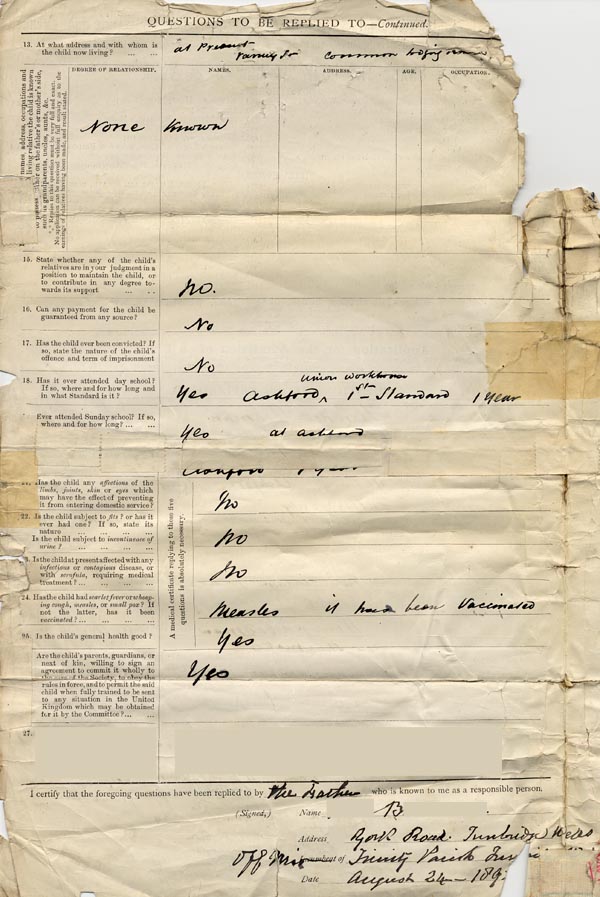 QUESTIONS TO BE REPLIED TO—Continued.
13. At what address and with whom is
the child now living? ... ...
at Present
Common lodging
DEGREE OF RELATIONSHIP.
NAMES.
ADDRESS.
AGE.
OCCUPATION.
names, address, occupations and
living relative the child is known
on the father's or mother's side,
such as grandparents, uncles, aunts, &c.
*** Replies to this question must be very full and exact.
No application can be received without full enquiry as to the
earnings of relatives having been made, and result stated.
None Known
15. State whether any of the child's
relatives are in your judgment in a
position to maintain the child, or
to contribute in any degree to-
wards its support ... ...
No.
16. Can any payment for the child be
guaranteed from any source?
No
17. Has the child ever been convicted? If
so, state the nature of the child's
offence and term of imprisonment
No
18. Has it ever attended day school?
If so, where and for how long and
in what Standard is it?
Union Workhouse
Yes Ashford ^ 1st Standard 1 year
Ever attended Sunday school? If so,
where and for how long? ... ...
Yes at Ashford
Has the child any affections of the
limbs, joints, skin or eyes which
may have the effect of preventing
it from entering domestic service?
No
22. Is the child subject to fits? or has it
ever had one? If so, state its
nature ... ... ... ...
Is the child subject to incontinence of
urine? ... ... ... ...
No
Is the child at present affected with any
infectious or contagious disease, or
with scrofula, requiring medical
treatment? ... ... ... ...
No
24. Has the child had scarlet fever or whoop-
ing cough, measles, or small pox? If
not the latter, has it been
vaccinated? ... ... ... ...
Measles it has been Vaccinated
A medical certificate replying to these five
questions is absolutely necessary.
25. Is the child's general health good?
Yes
Are the child's parents, guardians, or
next of kin, willing to sign an
agreement to commit it wholly to
the care of the Society, to obey the
rules in force, and to permit the said
child when fully trained to be sent
to any situation in the United
Kingdom which may be obtained
for it by the Committee? ... ...
Yes
27.
I certify that the foregoing questions have been replied to by the Father who is known to me as a responsible person.
(Signed,) Name B
Address York Road. Tunbridge Wells
of Trinity Parish
Date August 24— 189